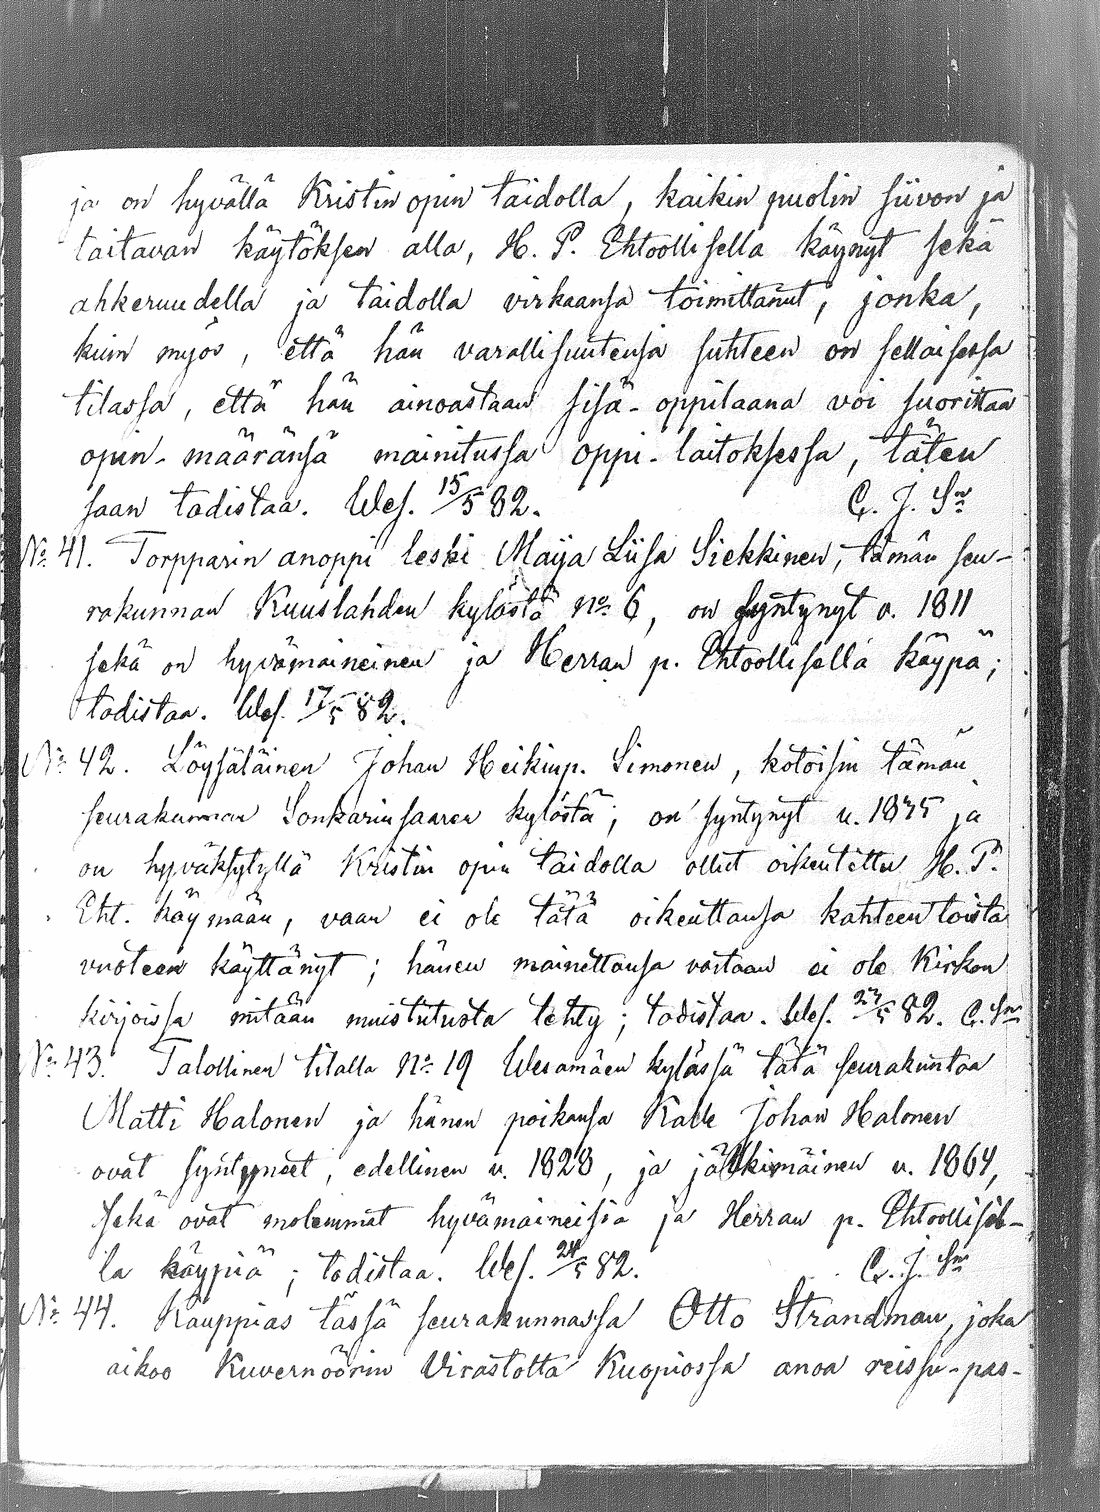 ja on hyvällä Kristin opin taidolla, kaikin puolin siivon ja
taitavan käytöksen alla, H. P. Ehtoollisella käynyt sekä
ahkeruudella ja taidolla virkaansa toimittanut; jonka,
kuin myös, että hän varallisuutensa suhteen on sellaisessa
tilassa, että hän ainoastaan sisä-oppilaana voi suorittaa
opin-määränsä mainitussa oppi-laitoksessa, täten
saan todistaa. Wes. 15/5 82. C. J. Sn
No 41. Torpparin anoppi leski Maija Liisa Siekkinen, tämän seu-
rakunnan Kuuslahden kylästä No 6, on syntynyt v. 1811
sekä on hyvämaineinen ja Herran p. Ehtoollisella käypä;
todistaa. Wes. 17/5 82.
No 42. Löysäläinen Johan Heikinp. Simonen, kotoisin tämän
seurakunnan Sonkarinsaaren kylästä; on syntynyt v. 1845 ja
on hyväksytyllä Kristin opin taidolla ollut oikeutettu H. P.
Eht. käymään, vaan ei ole tätä oikeuttansa kahteentoista
vuoteen käyttänyt; hänen mainettansa vastaan ei ole Kirkon
kirjoissa mitään muistutusta tehty; todistaa. Wes. 23/5 82. C. Sn
No 43. Talollinen tilalla No 19 Wesamäen kylässä tätä seurakuntaa
Matti Halonen ja hänen poikansa Kalle Johan Halonen
ovat syntyneet, edellinen v. 1828, ja jälkimäinen v. 1864,
sekä ovat molemmat hyvämaineisia ja Herran p. Ehtoollisel-
la käypiä; todistaa. Wes. 24/5 82. C. J. Sn
No 44. Kauppias tässä seurakunnassa Otto Strandman, joka
aikoo Kuvernöörin Virastolta Kuopiossa anoa reissu-pas-